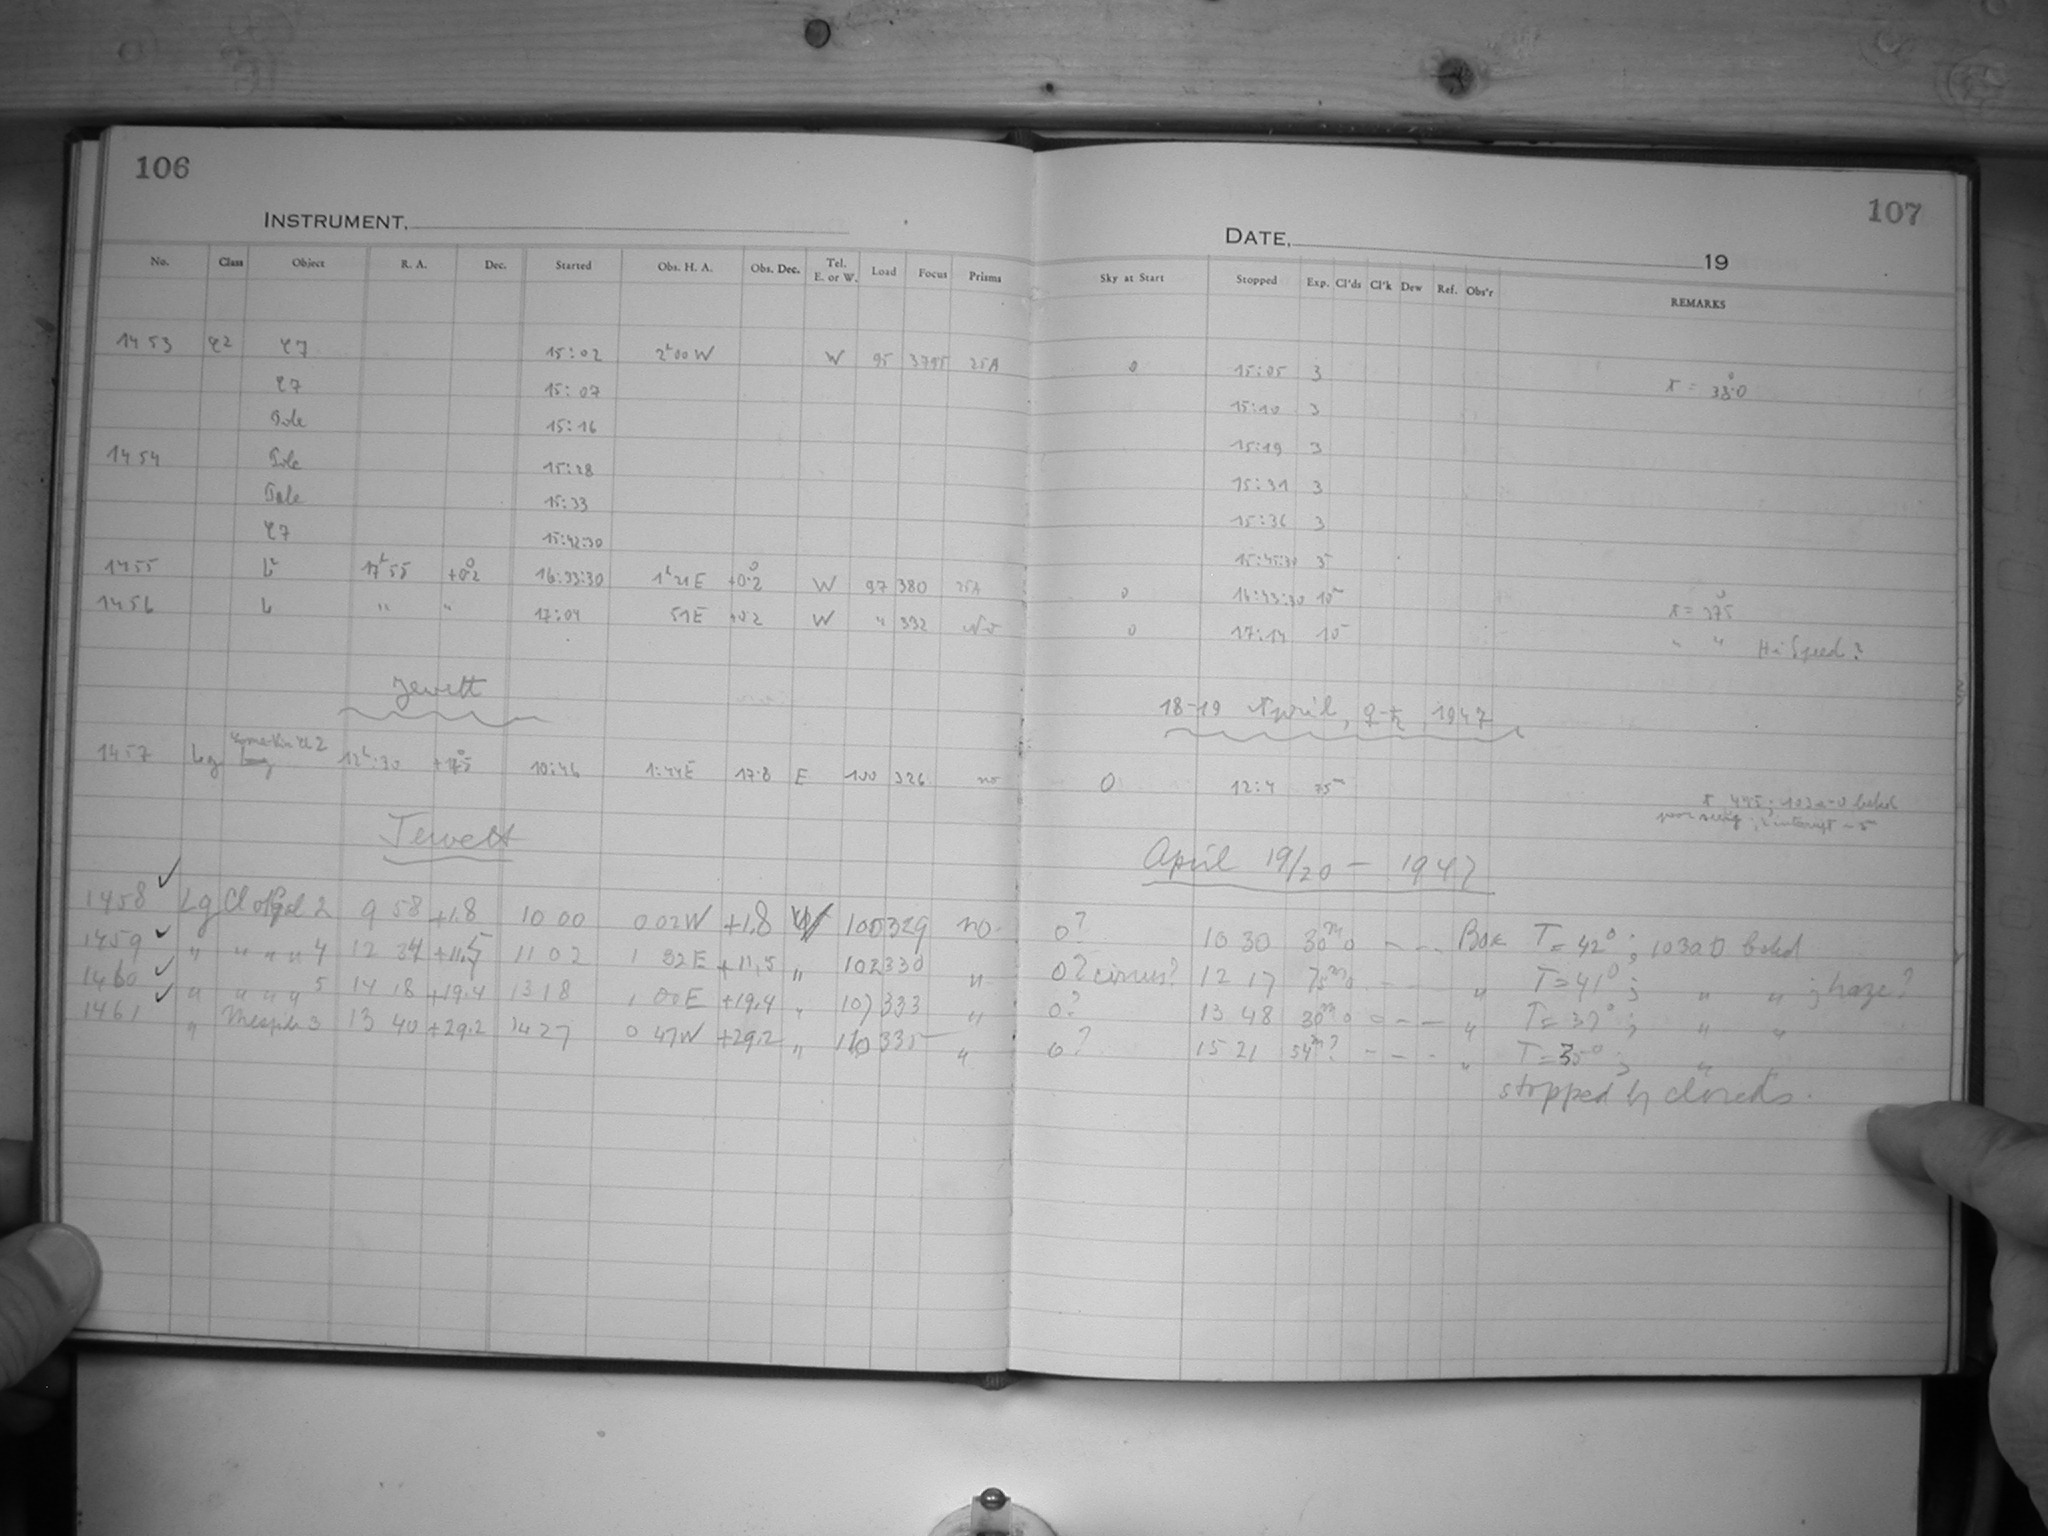 106
INSTRUMENT,
No. Class Object R. A. Dec. Started Obs. H. A. Obs. Dec. Tel. E. or W. Load Focus Prisms
1453 15:02 2h00 W W 95 3795 25A
15:07
Pole 15:16
1454 Pole 15:28
Pole 15:33
15:42:30
1455 17h55 +0.2 16:33:30 1h21E +0.2 W 97 380 25A
1456 " " 17:04 51E +0.2 W " 332 No
Jewett
1457 Lg 12h:30 +17.5 10:46 1:44E 17.8 E 100 326 no
Jewett
1458 ✓ Lg Cl of Gal 2 9 58 +1.8 10 00 0 02W +1.8 W 100 329 no.
1459 ✓ " " " " 4 12 34 +11.5 11 02 1 32E +11.5 " 102 330 "
1460 ✓ " " " " 5 14 18 +19.4 13 18 1 00E +19.4 " 107 333 "
1461 ✓ " 3 13 40 +29.2 14 27 0 47W +29.2 " 110 335 "
107
DATE, 19
Sky at Start Stopped Exp. Cl'ds Cl'k Dew Ref. Obs'r REMARKS
0 15:05 3
15:10 3
15:19 3
15:31 3
15:36 3
15:45:30 3
0 16:43:30 10m
0 17:14 10m " " Hi Speed?
18-19 April, ♀-♄, 1947
0 12:4 75m
April 19/20 - 1947
0? 10 30 30m 0 - - Bok T=42°; 103aO baked
0? cirrus? 12 17 75m 0 - - " T=41°; " " ; haze?
0? 13 48 30m 0 0 - - " T=37°; " "
0? 15 21 54m? - - - " T=35°; "
stopped by clouds.